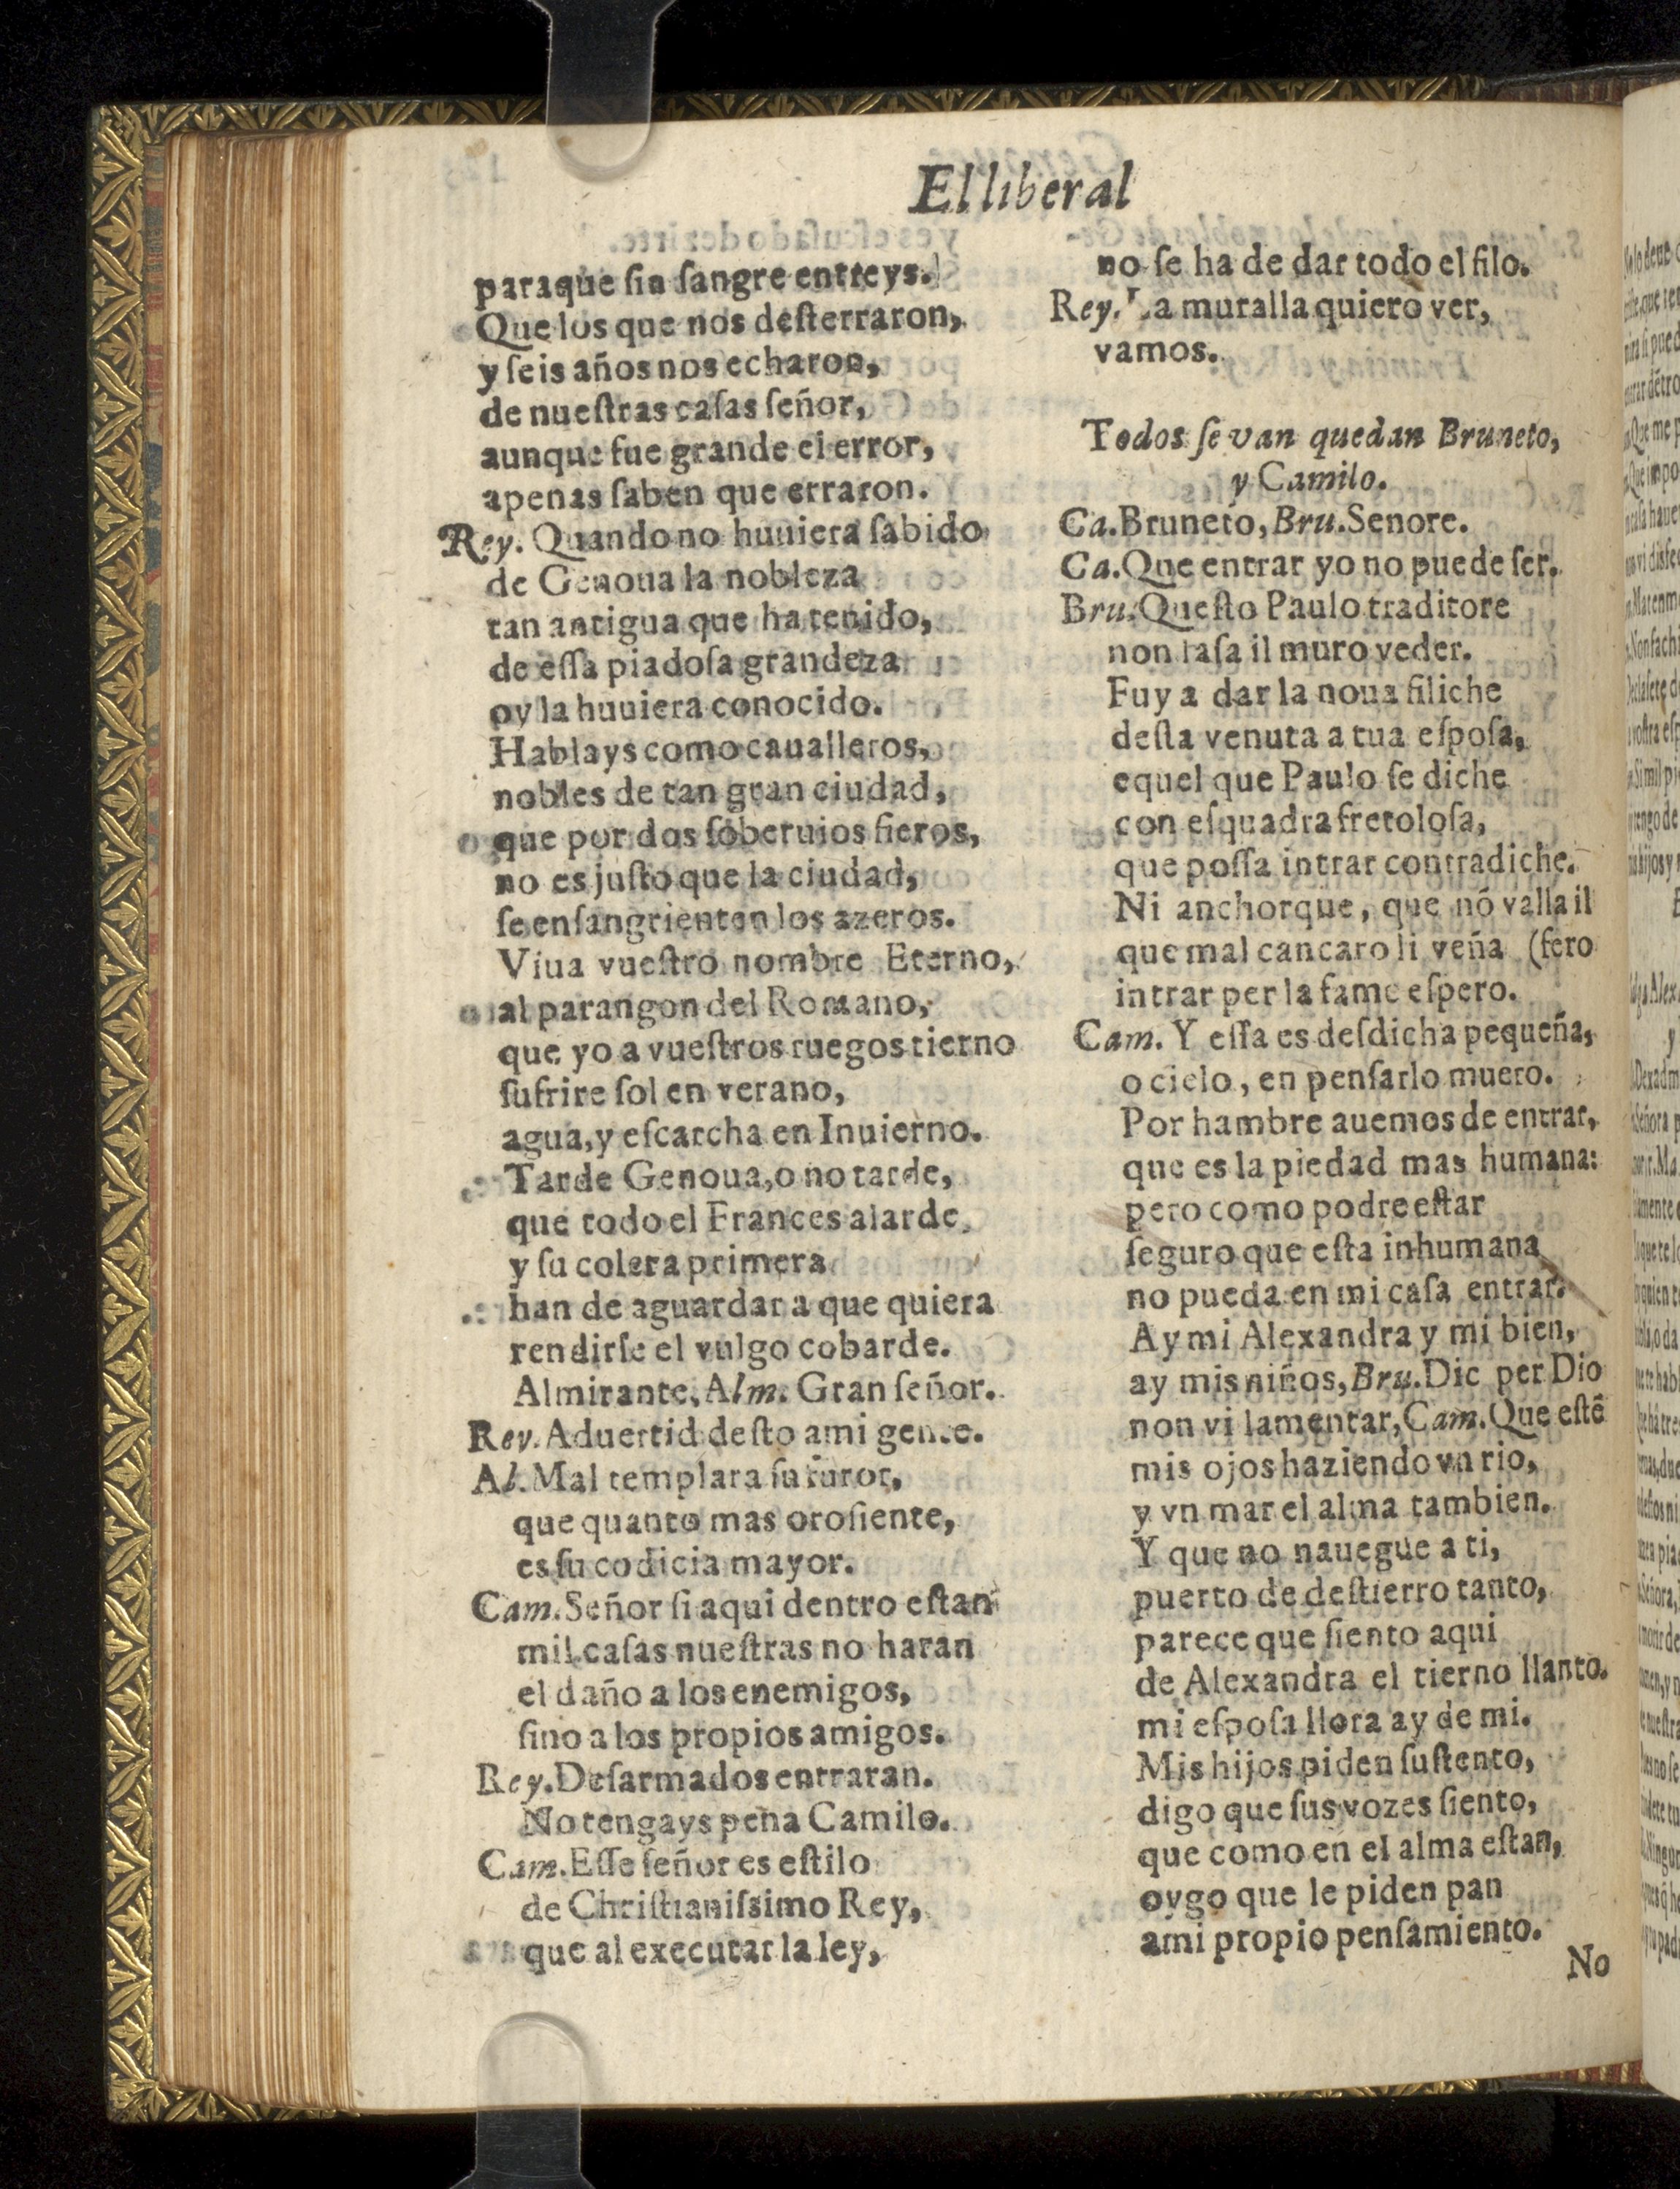 El liberal
paraque sin sangre entreys.
Que los que nos desterraron,
y seis años nos echaron,
de nuestras casas señor,
aunque fue grande el error,
apenas saben que erraron.
Rey. Quando no huuiera sabido
de Genoua la nobleza
tan antigua que ha tenido,
de essa piadosa grandeza
oy la huuiera conocido.
Hablays como caualleros,
nobles de tan gran ciudad,
que por dos soberuios fieros,
no es justo que la ciudad,
se ensangrienten los azeros.
Viua vuestro nombre Eterno,
al parangon del Romano,
que yo a vuestros ruegos tierno
sufrire sol en verano,
agua, y escarcha en Inuierno.
Tarde Genoua, o no tarde,
que todo el Frances alarde,
y su colera primera
han de aguardar a que quiera
rendirse el vulgo cobarde.
Almirante, Alm. Gran señor.
Rey. Aduertid desto ami gente.
Al. Mal templara su furor,
que quanto mas oro siente,
es su codicia mayor.
Cam. Señor si aqui dentro estan
mil casas nuestras no haran
el daño a los enemigos,
sino a los propios amigos.
Rey. Desarmados entraran.
No tengays pena Camilo.
Cam. Esse señor es estilo
de Christianissimo Rey,
que al executar la ley,
no se ha de dar todo el filo.
Rey. La muralla quiero ver,
vamos.
Todos se van quedan Bruneto,
y Camilo.
Ca. Bruneto, Bru. Senore.
Ca. Que entrar yo no puede ser.
Bru. Questo Paulo traditore
non lasa il muro veder.
Fuy a dar la noua filiche
desta venuta a tua esposa,
equel que Paulo se diche
con esquadra fretolosa,
que possa intrar contradiche.
Ni anchorque, que nó valla il
que mal cancaro li veña (fero
intrar per la fame espero.
Cam. Y essa es desdicha pequeña,
o cielo, en pensarlo muero.
Por hambre auemos de entrar,
que es la piedad mas humana:
pero como podre estar
seguro que esta inhumana
no pueda en mi casa entrar.
Ay mi Alexandra y mi bien,
ay mis niños, Bru. Dic per Dio
non vi lamentar, Cam. Que estē
mis ojos haziendo vn rio,
y vn mar el alma tambien.
Y que no nauegue a ti,
puerto de destierro tanto,
parece que siento aqui
de Alexandra el tierno llanto.
mi esposa llora ay de mi.
Mis hijos piden sustento,
digo que sus vozes siento,
que como en el alma estan,
oygo que le piden pan
ami propio pensamiento.
No